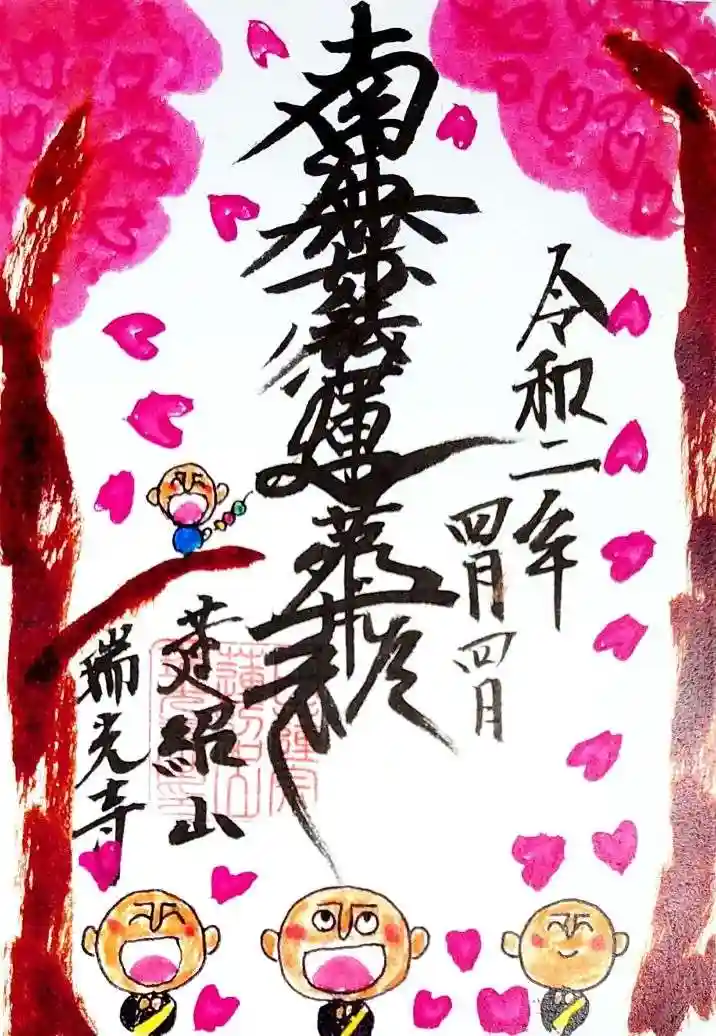 南無妙法蓮華経
令和二年
四月四日
蓮紹山
瑞光寺